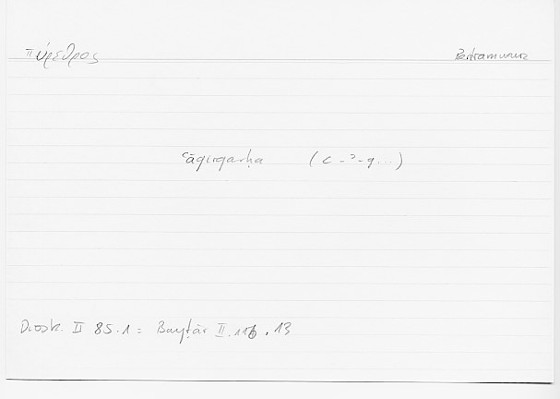 Πύρεθρος Bertramwurz
ʿāqirqarḥa (ʿ-ʾ-q...)
Diosk. II 85.1 = Bayṭār II.116.13